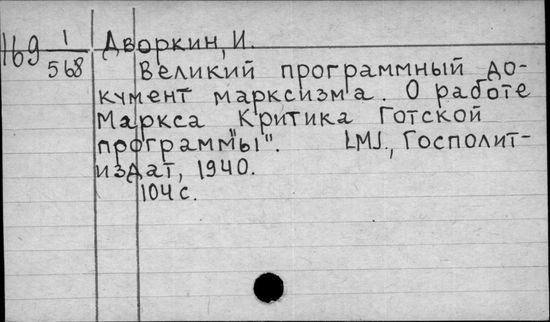 169 1/568 Дворкин, И.
Великий программный до-
кумент марксизма. О работе
Маркса "Критика Готской
программы". [М]., Госполит-
издат, 1940.
104 с.